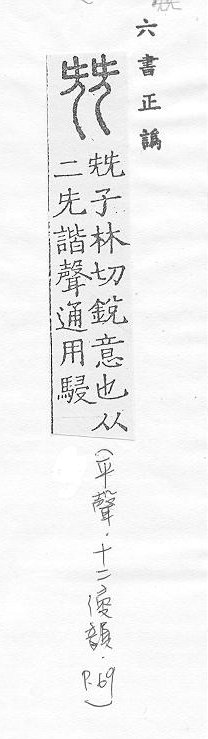 六書正譌
兓子林切銳意也从
二兂諧聲通用駸
(平聲．十二侵韻．P.69)